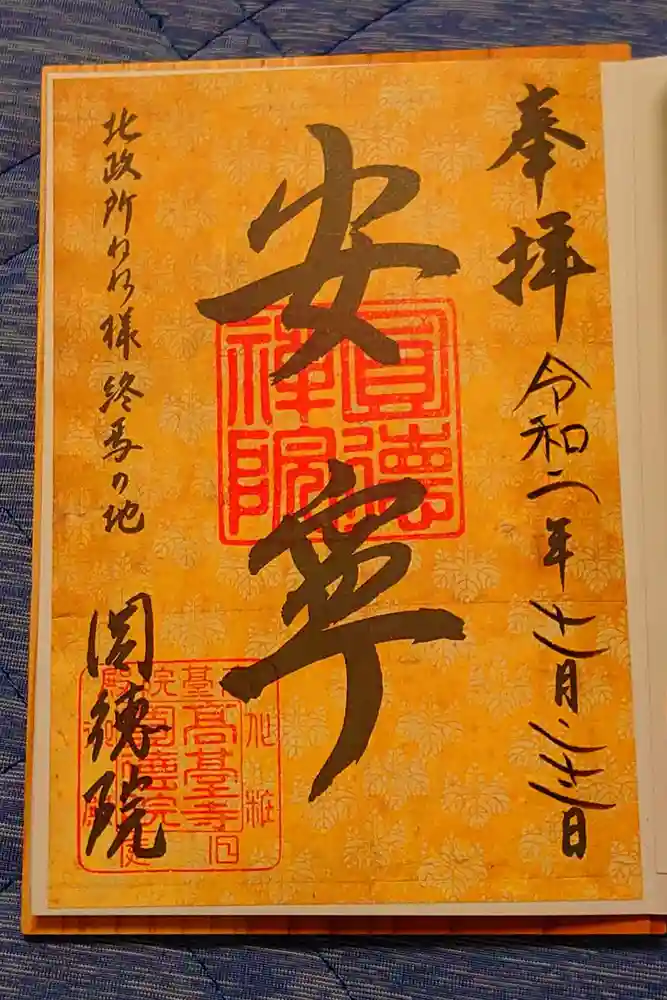 奉拝 令和二年十一月二十一日
安寧
圓德
禪院
北政所ねね様 終焉の地
圓徳院
高臺寺
圓德院